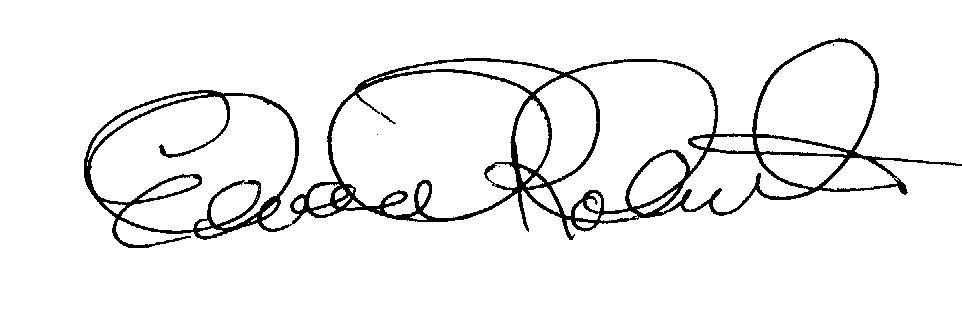 Edward Roberts